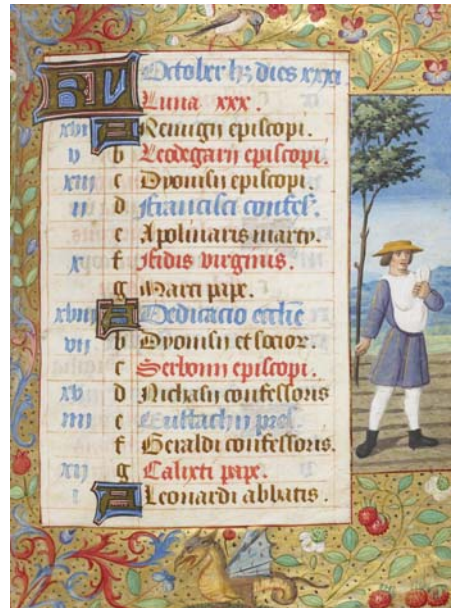 KL October hz dies xxxi
Luna xxx.
xvi A Remigii episcopi.
v b Leodegarii episcopi.
xiii c Dyonisii episcopi.
ii d Francisci confes.
e Apolinaris marty.
x f Fidis virginis.
g Marci pape.
xviii A Dedicacio ecclie
vii b Dyonisii et socior.
c Serbonii episcopi.
xv d Nichasii confessoris
iiii e Eustachii
f Geraldi confessoris.
xii g Calixti pape.
i A Leonardi abbatis.